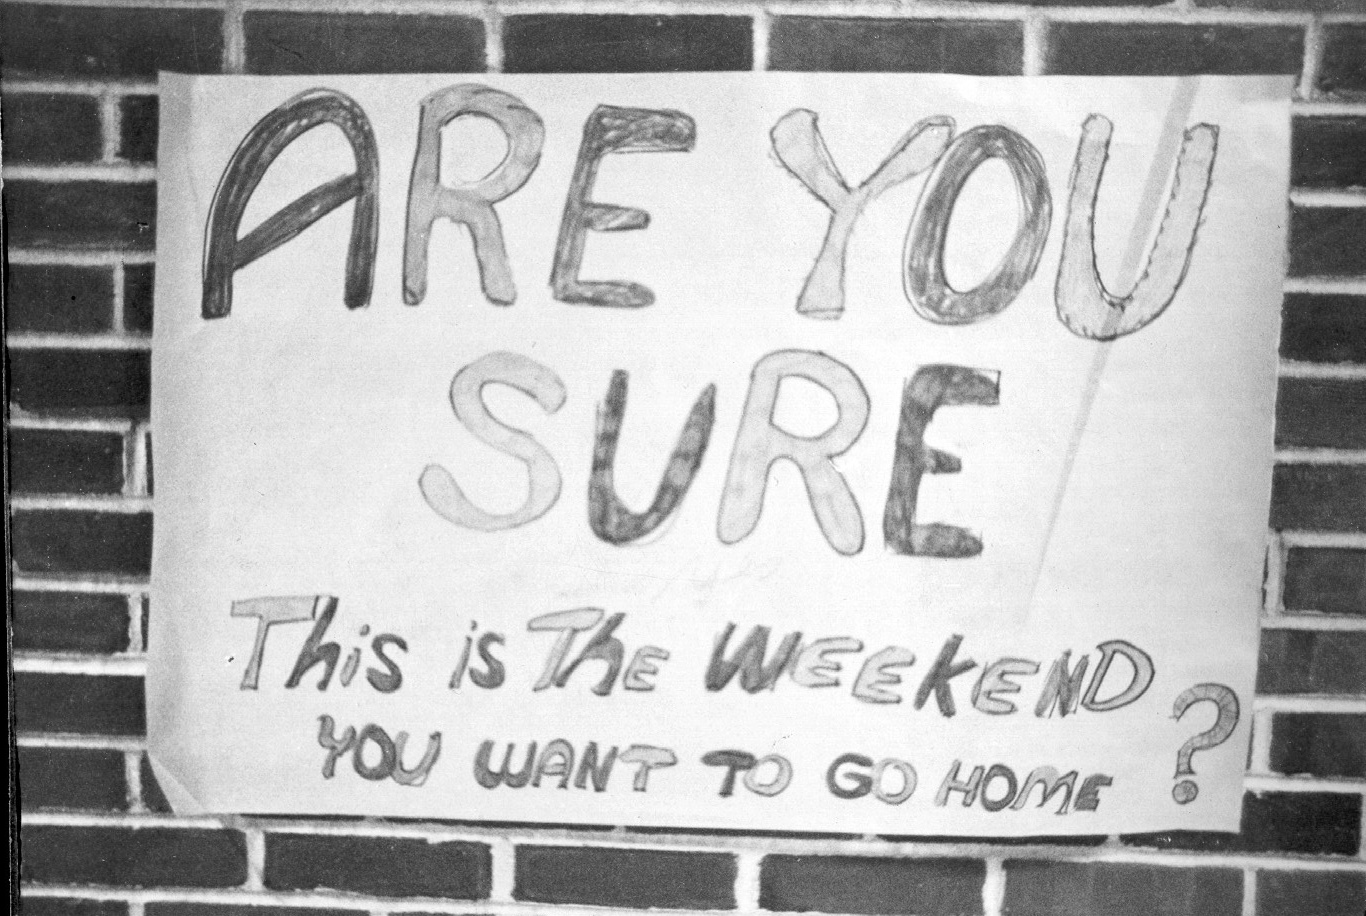 ARE YOU
SURE
This is The WEEKEND
YOU WANT TO GO HOME ?